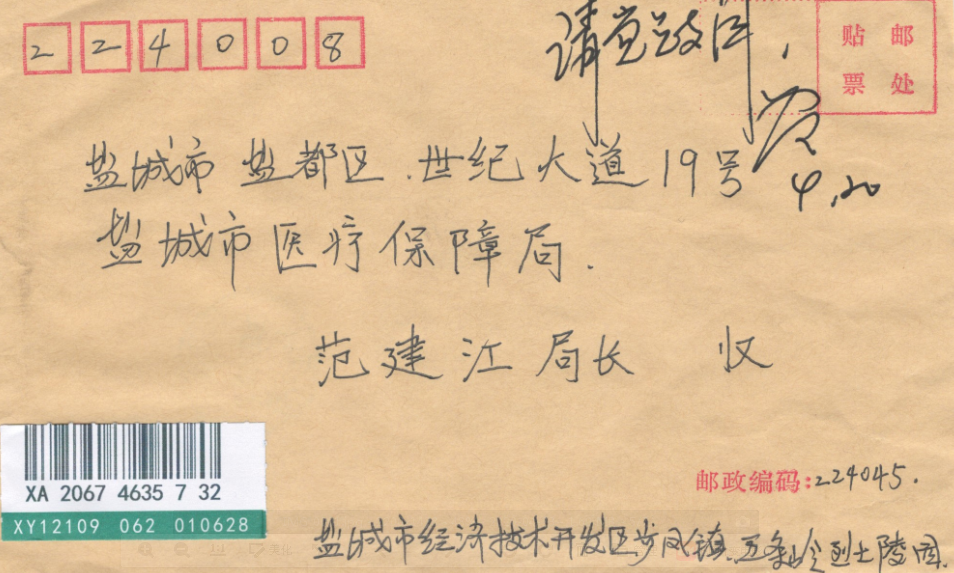 224008
贴 邮
票 处
4.20
盐城市 盐都区.世纪大道19号
盐城市医疗保障局.
范建江局长 收
XA 2067 4635 7 32
XY12109 062 010628
邮政编码:224045.
盐城市经济技术开发区步凤镇.五条岭烈士陵园.